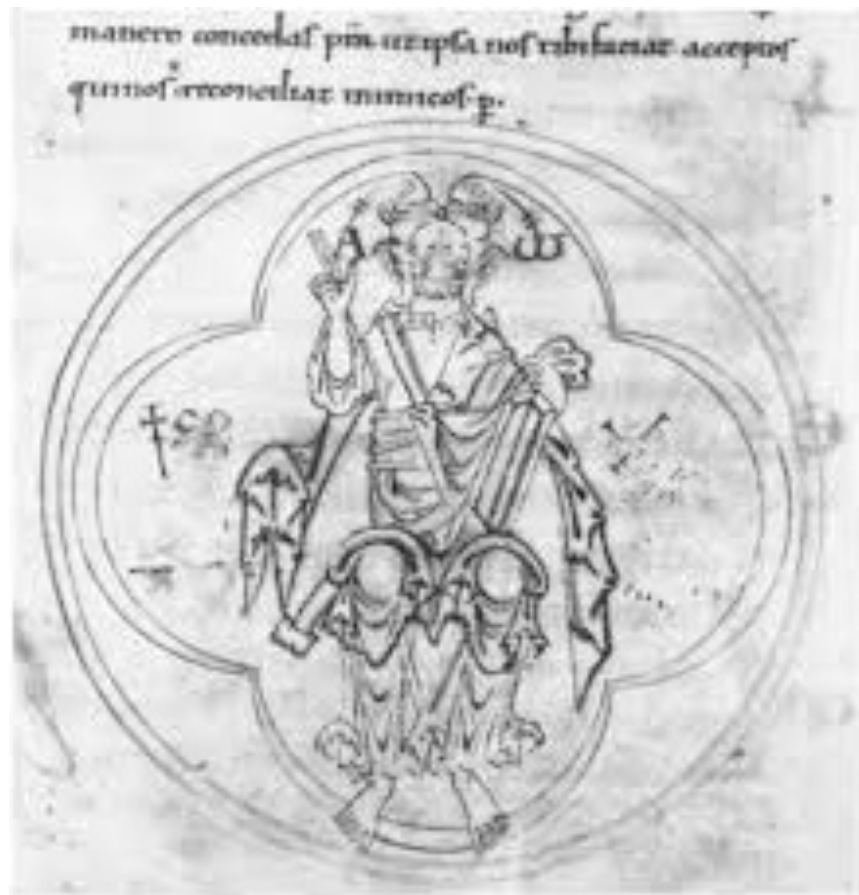 manere concedas p̄m ut ipsa nos tibi faciat acceptos
qui nos reconciliat inimicos · p ·
A ω